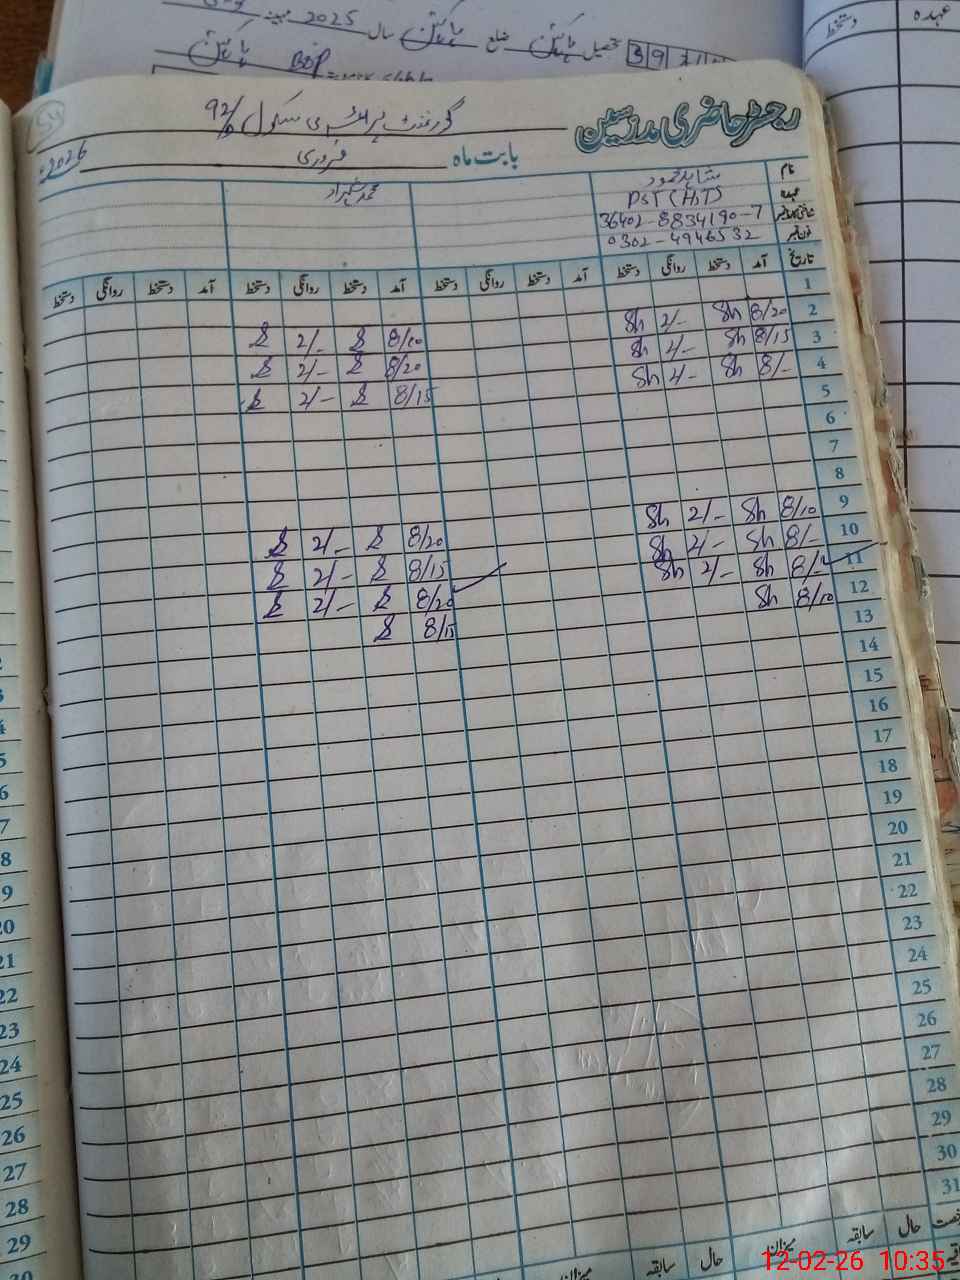 سال 2025 مہینہ
تحصیل پاکپتن ضلع پاکپتن
39
پاکپتن BOP
عہدہ
دستخط
54
رجسٹر حاضری مدرسین
گورنمنٹ پرائمری سکول 92/D
بابت ماہ فروری 2026ء
نام شاہد محمود محمد شہزاد
عہدہ PST (HT)
شناختی کارڈ نمبر 36402-8834190-7
فون نمبر 0302-4946532
تاریخ آمد دستخط روانگی دستخط آمد دستخط روانگی دستخط آمد دستخط روانگی دستخط آمد دستخط روانگی دستخط
1
2 8/20 Sh 2/- Sh 8/20 S 2/- S
3 8/15 Sh 2/- Sh 8/20 S 2/- S
4 8/- Sh 2/- Sh 8/15 S 2/- S
5
6
7
8
9 8/10 Sh 2/- Sh 8/20 S 2/- S
10 8/- Sh 2/- Sh 8/15 S 2/- S
11 8/- Sh 2/- Sh 8/20 S 2/- S
12 8/10 Sh 8/15 S
13
14
15
16
17
18
19
20
21
22
23
24
25
26
27
28
29
30
31
حال سابقہ میزان حال سابقہ میزان
12-02-26 10:35